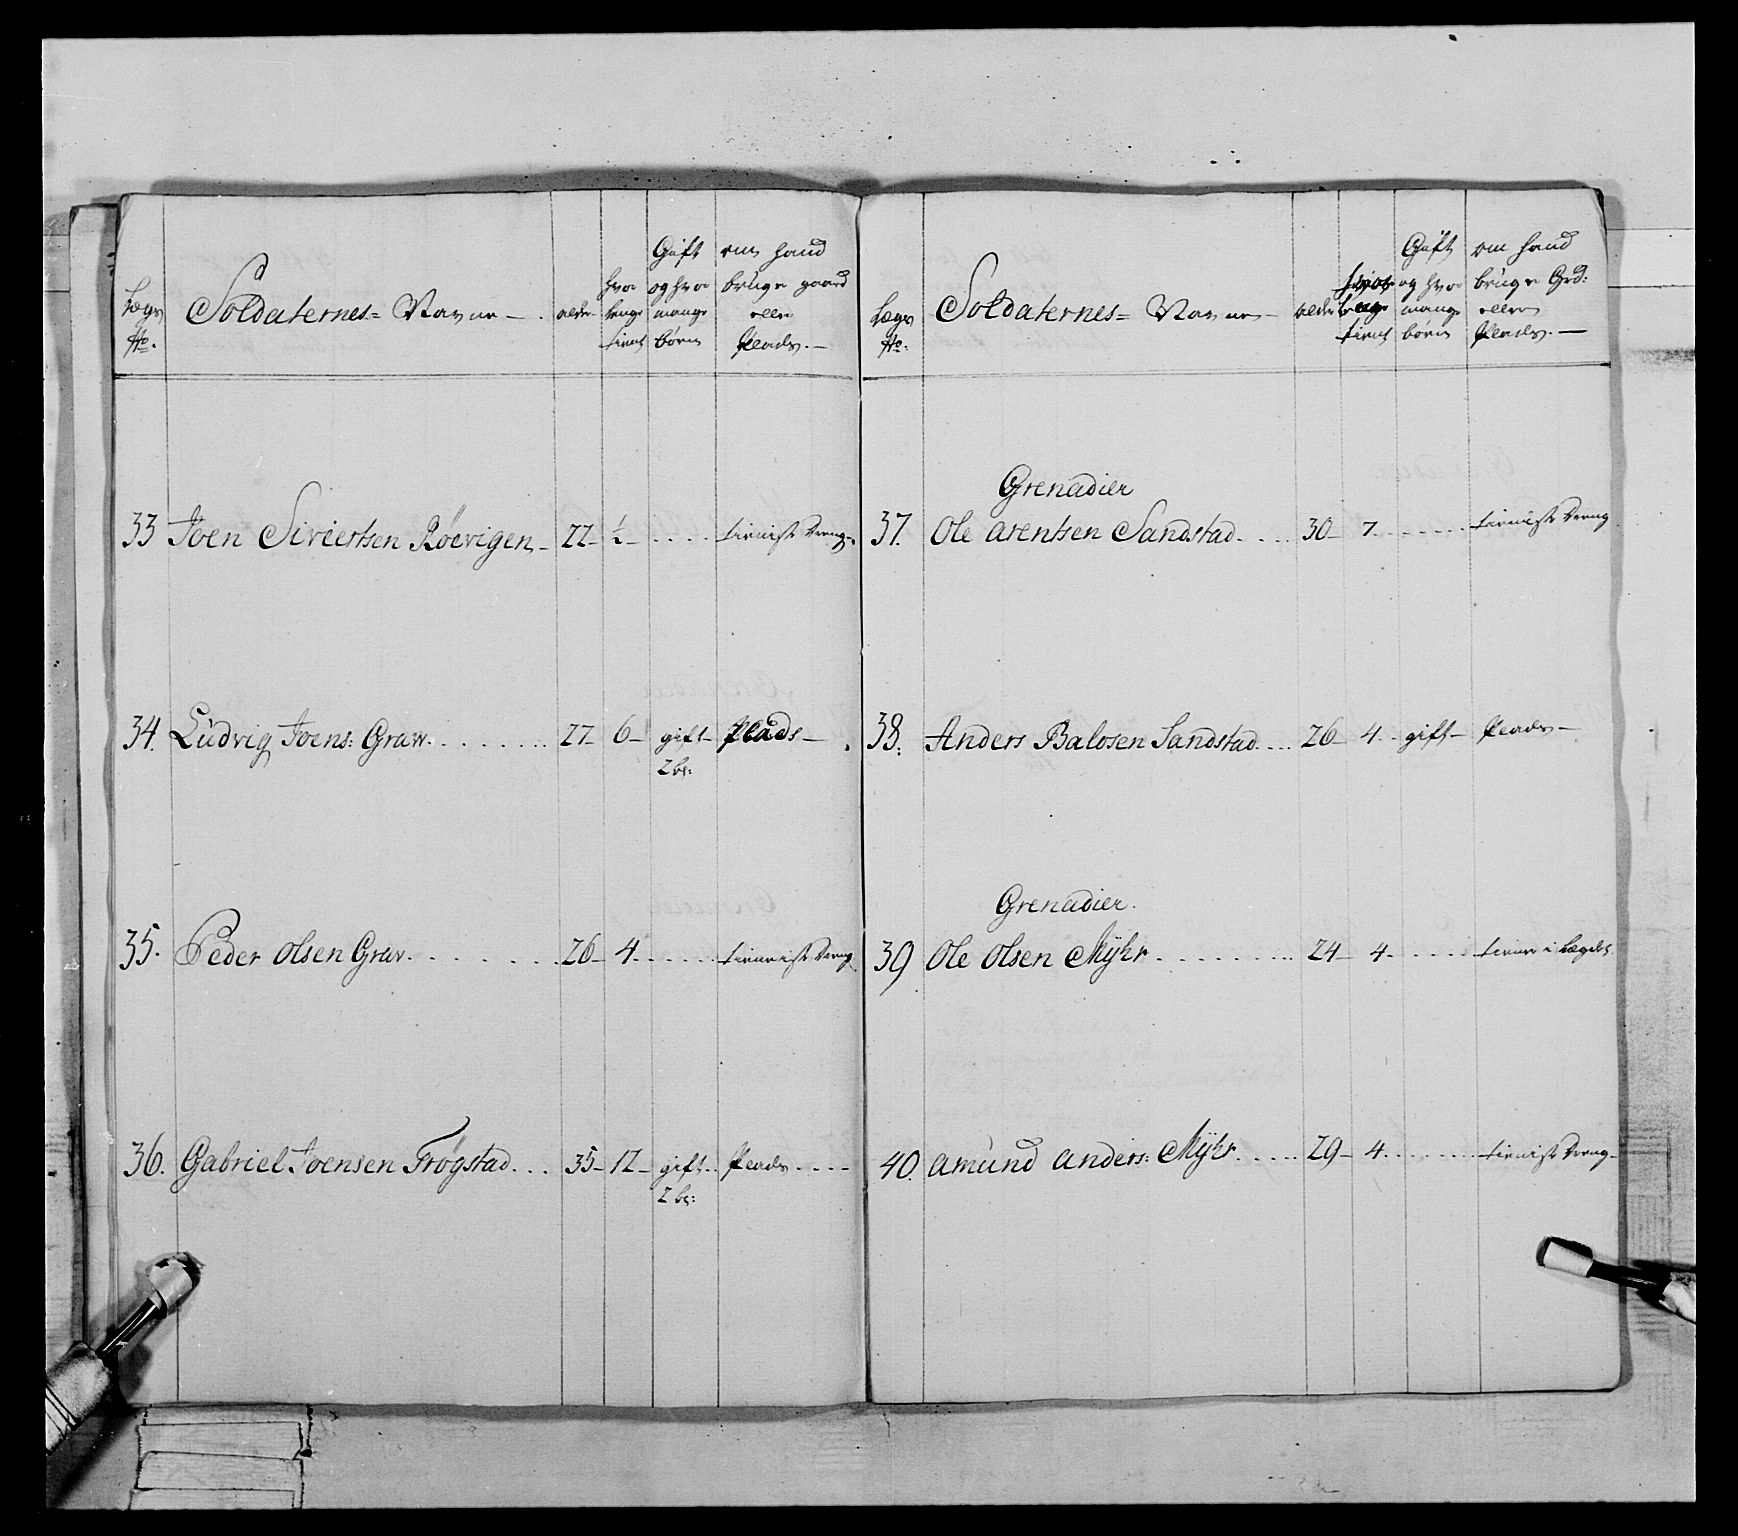 Lægs No. Soldaternes= Navne — alder hvor lenge tient Gift og hvor mange børn om hand bruger gaard eller Plads. —
33 Joen Siviertsen Røevigen — 22 — ½ — . . . . tienniste Dreng —
34. Ludvig Joens: Graw. . . . . . . . 27 — 6 — gift — Plads —
2 br:
35. Peder Olsen Graw. . . . . . . . 26 — 4. . . . . . tienniste Dreng
36. Gabriel Joensen Frøgstad. . . 35 — 12 — gift. . Plads. . . . —
2 br:
Lægs No: Soldaternes= Navne — alder hvor lenge tient Gift og hvor mange børn om hand bruger Grd: eller Plads. —
Grenadier
37. Ole Arentsen Sandstad. . . . 30 — 7. . . . . . tienniste Dreng
38. Anders Balosen Sandstad. . . . 26 — 4. . gift — Plads —
Grenadier.
39 Ole Olsen Myhr. . . . . . . . . 24 — 4. . . . . . tiener i Lægdet
40. Amund Anders: Myhr. . . . . 29 — 4. . . . . . . tienniste Dreng —